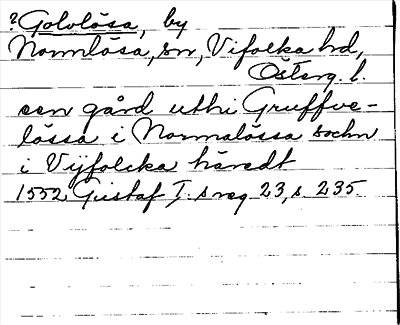 ? Gololösa, by
Normlösa, sn, Vifolka hd,
Österg. l.
een gård uthi Gruffve-
lössa i Normalössa sochn
i Vijfolcka häredt
1552 Gustaf I. s reg 23, s. 235